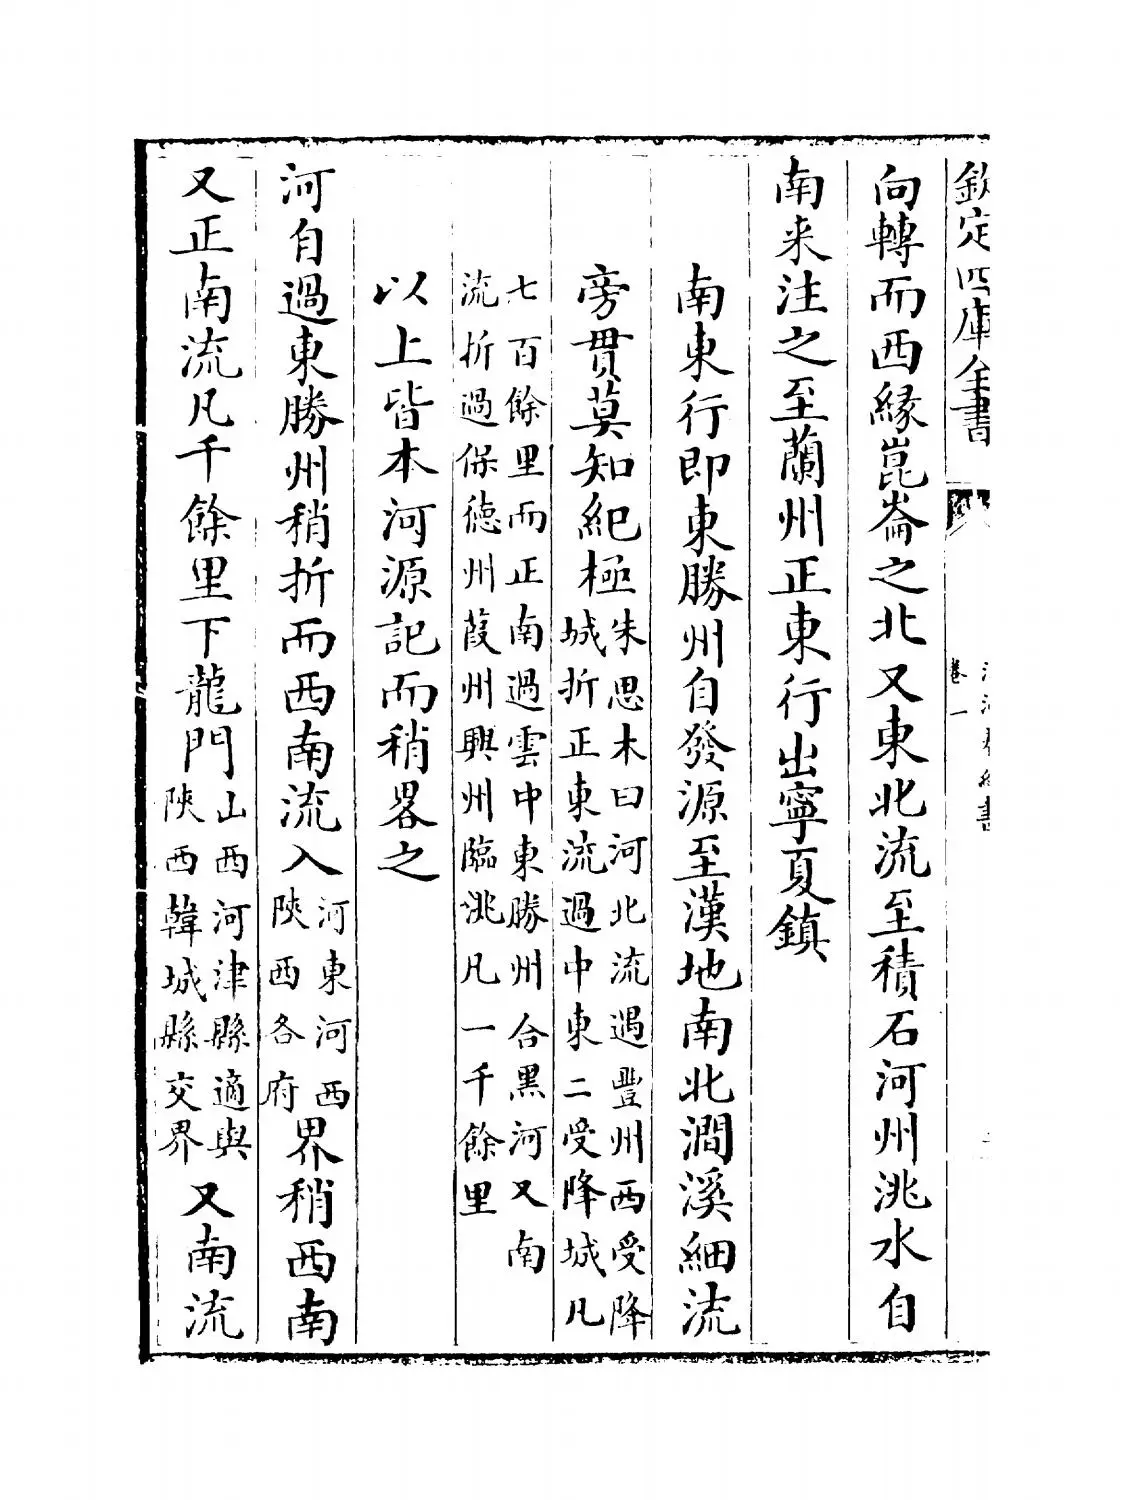 欽定四庫全書
卷一
向轉而西緣崑崙之北又東北流至積石河州洮水自
南来注之至蘭州正東行出寧夏鎮
南東行即東勝州自發源至漢地南北澗溪細流
旁貫莫知紀極朱思木曰河北流遇豐州西受降城折正東流過中東二受降城凡
七百餘里而正南過雲中東勝州合黑河又南流折過保德州葭州興州臨洮凡一千餘里
以上皆本河源記而稍畧之
河自過東勝州稍折而西南流入河東河西陜西各府界稍西南
又正南流凡千餘里下龍門山西河津縣適與陜西韓城縣交界又南流